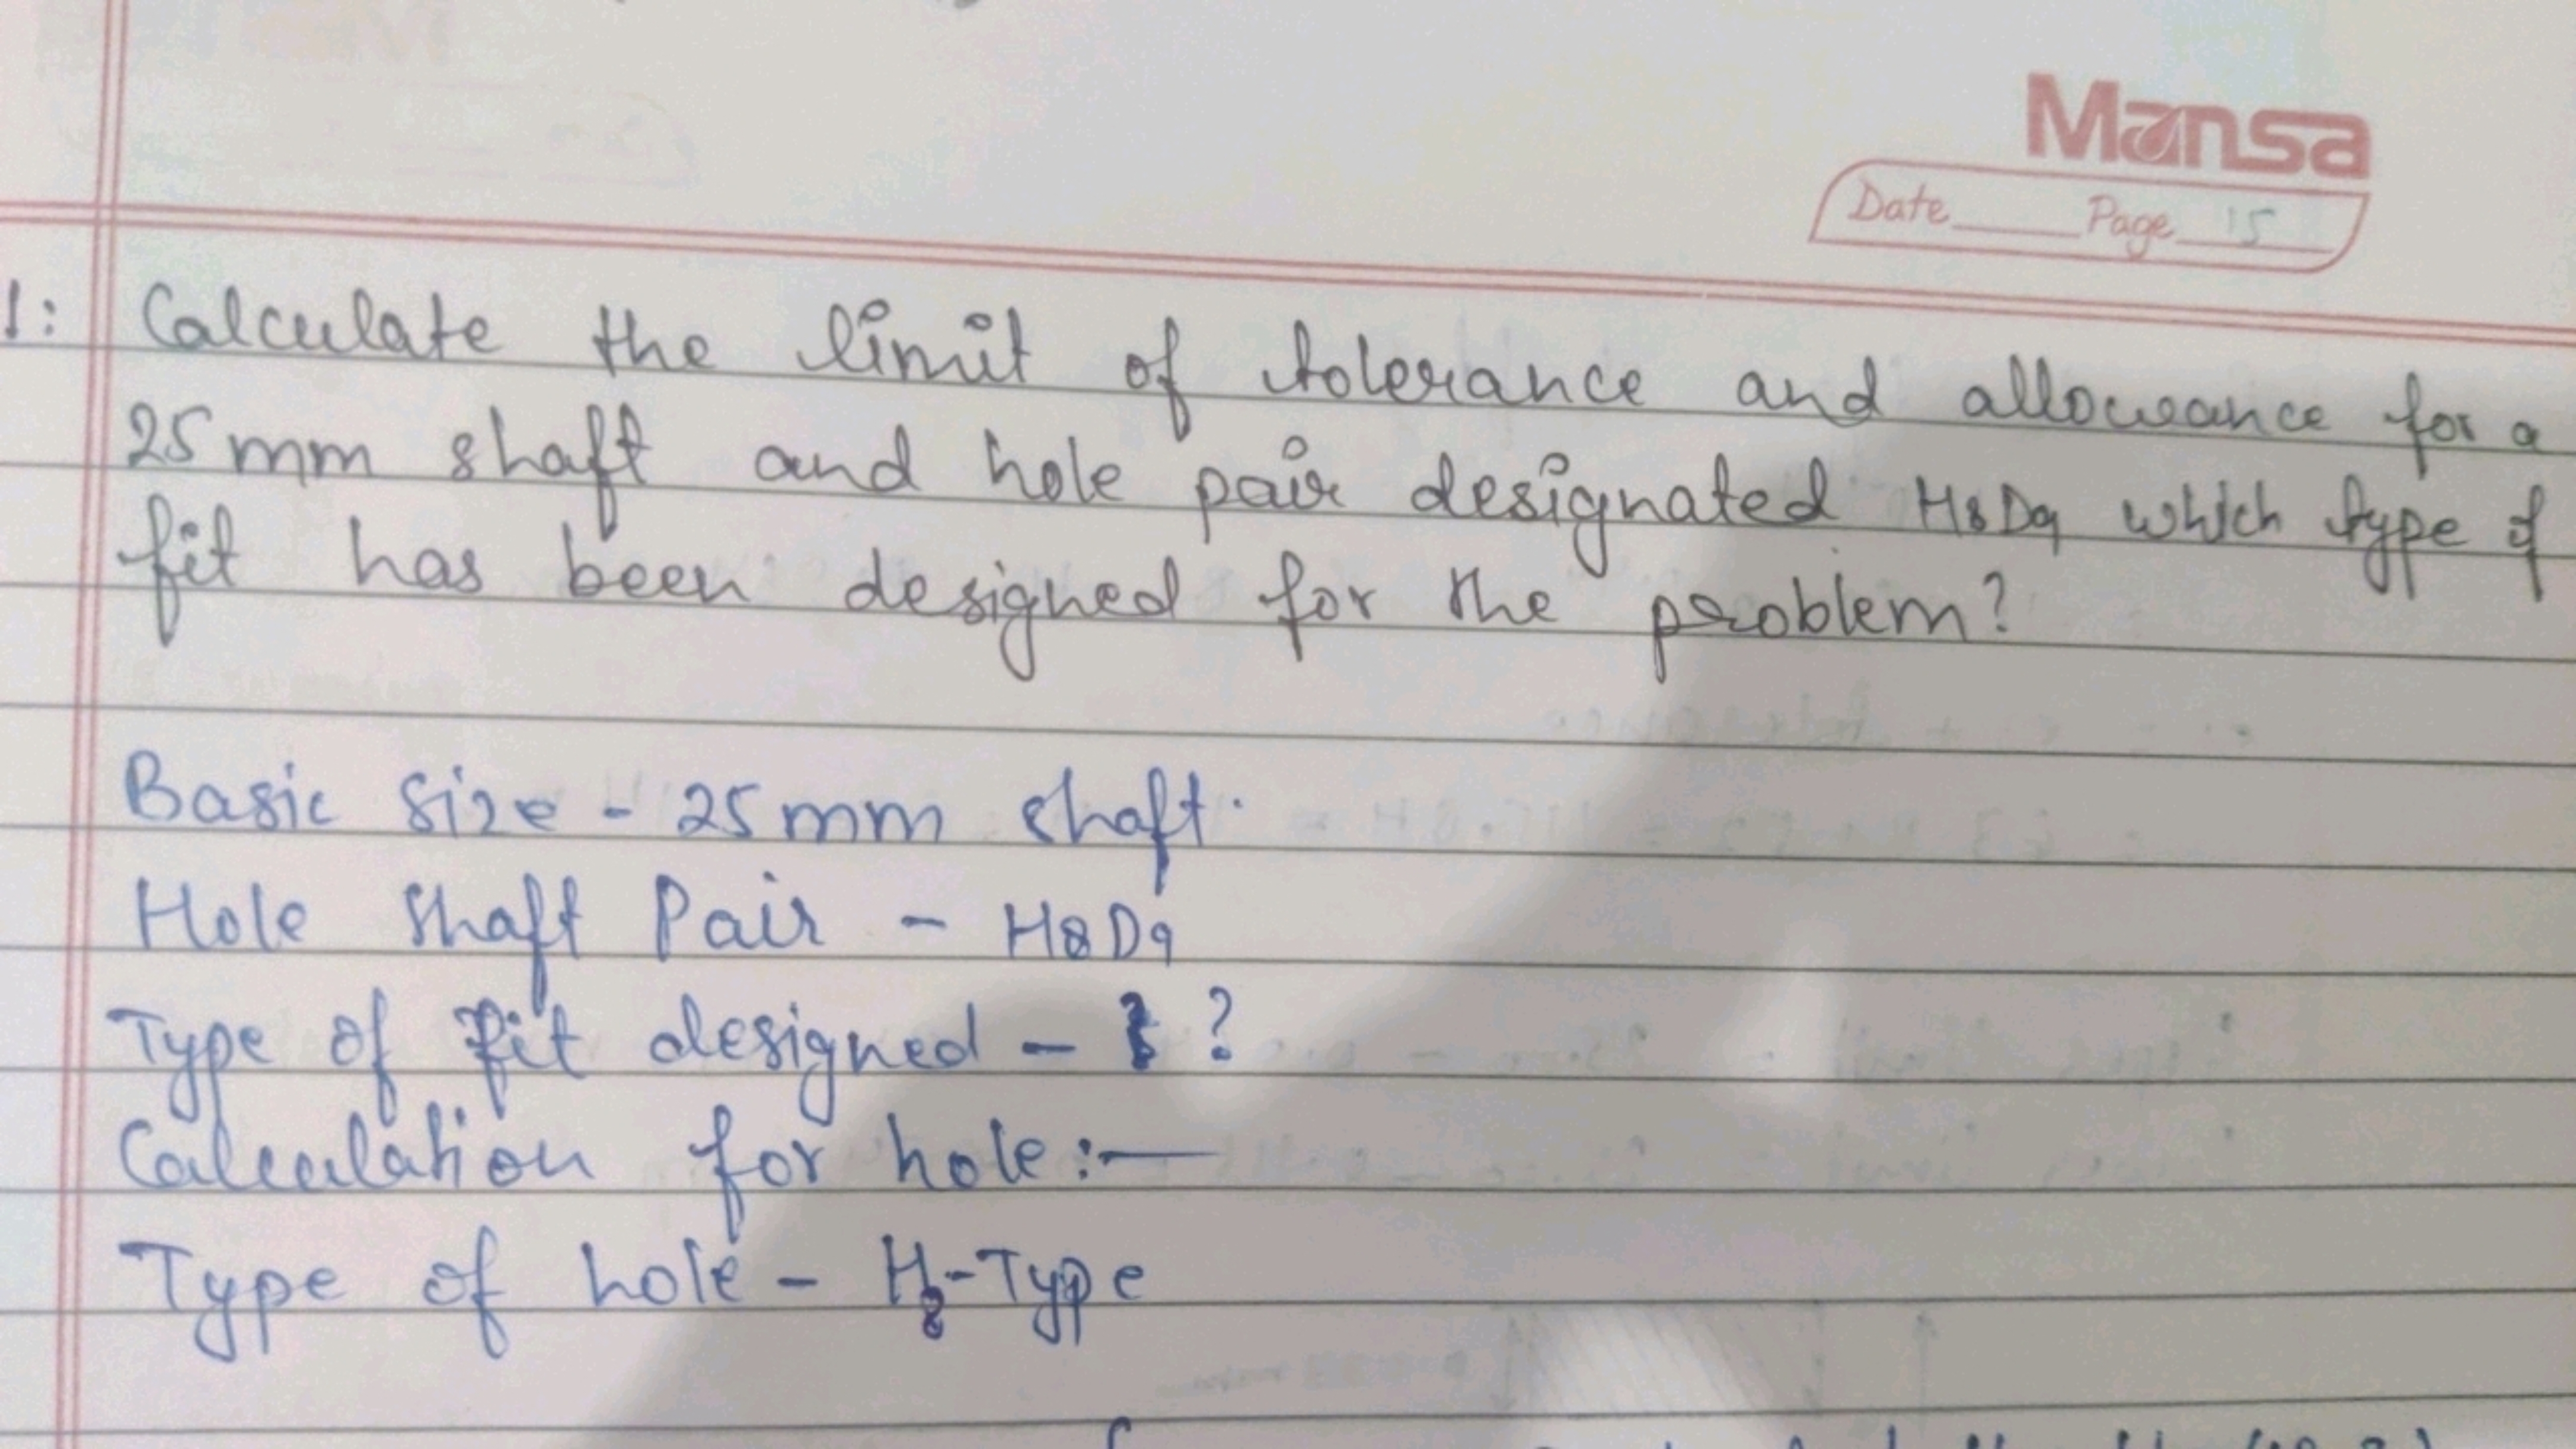 Mansa
Date Page 15
1: Calculate the limit of tolerance and allowance for a
25mm shaft and hole pair designated H8D9 which type of
fit has been designed for the problem?
Basic Size - 25mm shaft.
Hole shaft Pair - H8D9
Type of fit designed - ?
Calculation for hole :—
Type of hole - H8-Type